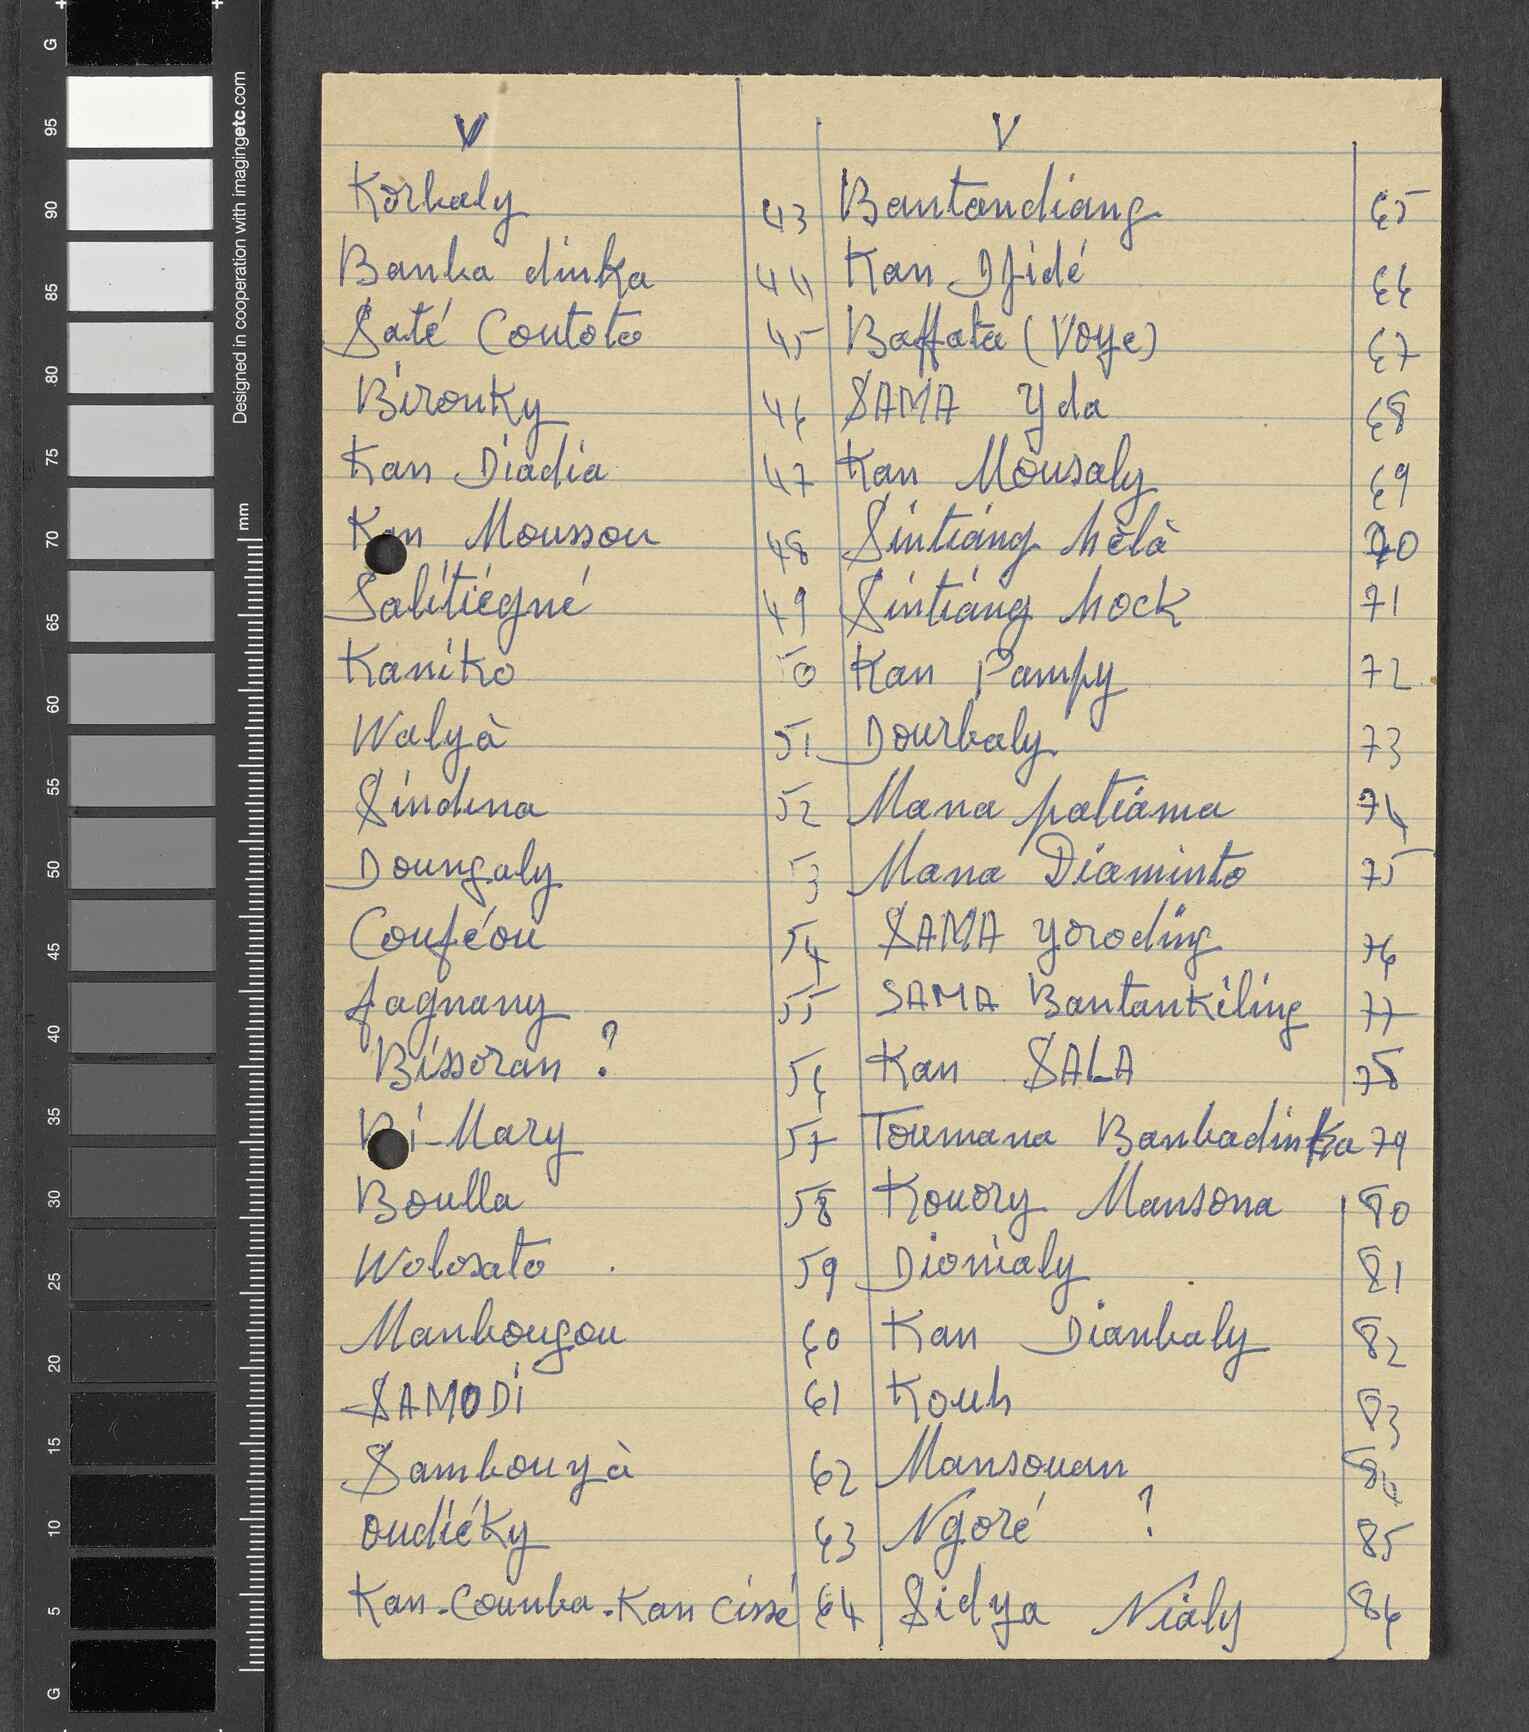 V
Korbaly 43
Banba dinka 44
Saté Coutoto 45
Bironky 46
Kan Diadia 47
Kan Moussou 48
Salitiégné 49
Kaniko 50
Walyà 51
Sindina 52
Doungaly 53
Couféou 54
fagnany 55
Bissoran ? 56
Bi-Mary 57
Boulla 58
Wolosato 59
Manbougou 60
SAMODI 61
Sambouyà 62
Oudiéky 63
Kan-Coumba-Kan Cissé 64
V
Bantandiang 65
Kan Ifidé 66
Baffata (Voye) 67
SAMA Yda 68
Kan Mousaly 69
Sintiang hèlà 70
Sintiang hock 71
Kan Pampy 72
Dourbaly 73
Mana patiama 74
Mana Diaminto 75
SAMA yoroding 76
SAMA Bantankiling 77
Kan SALA 78
Toumana Banbadinka 79
Kouory Mansona 80
Dionialy 81
Kan Dianbaly 82
Kouh 83
Mansouan 84
Ngoré ? 85
Sidya Nialy 86
G
95
90
85
80
75
70
65
60
55
50
45
40
35
30
25
20
15
10
5
G
mm
Designed in cooperation with imagingetc.com